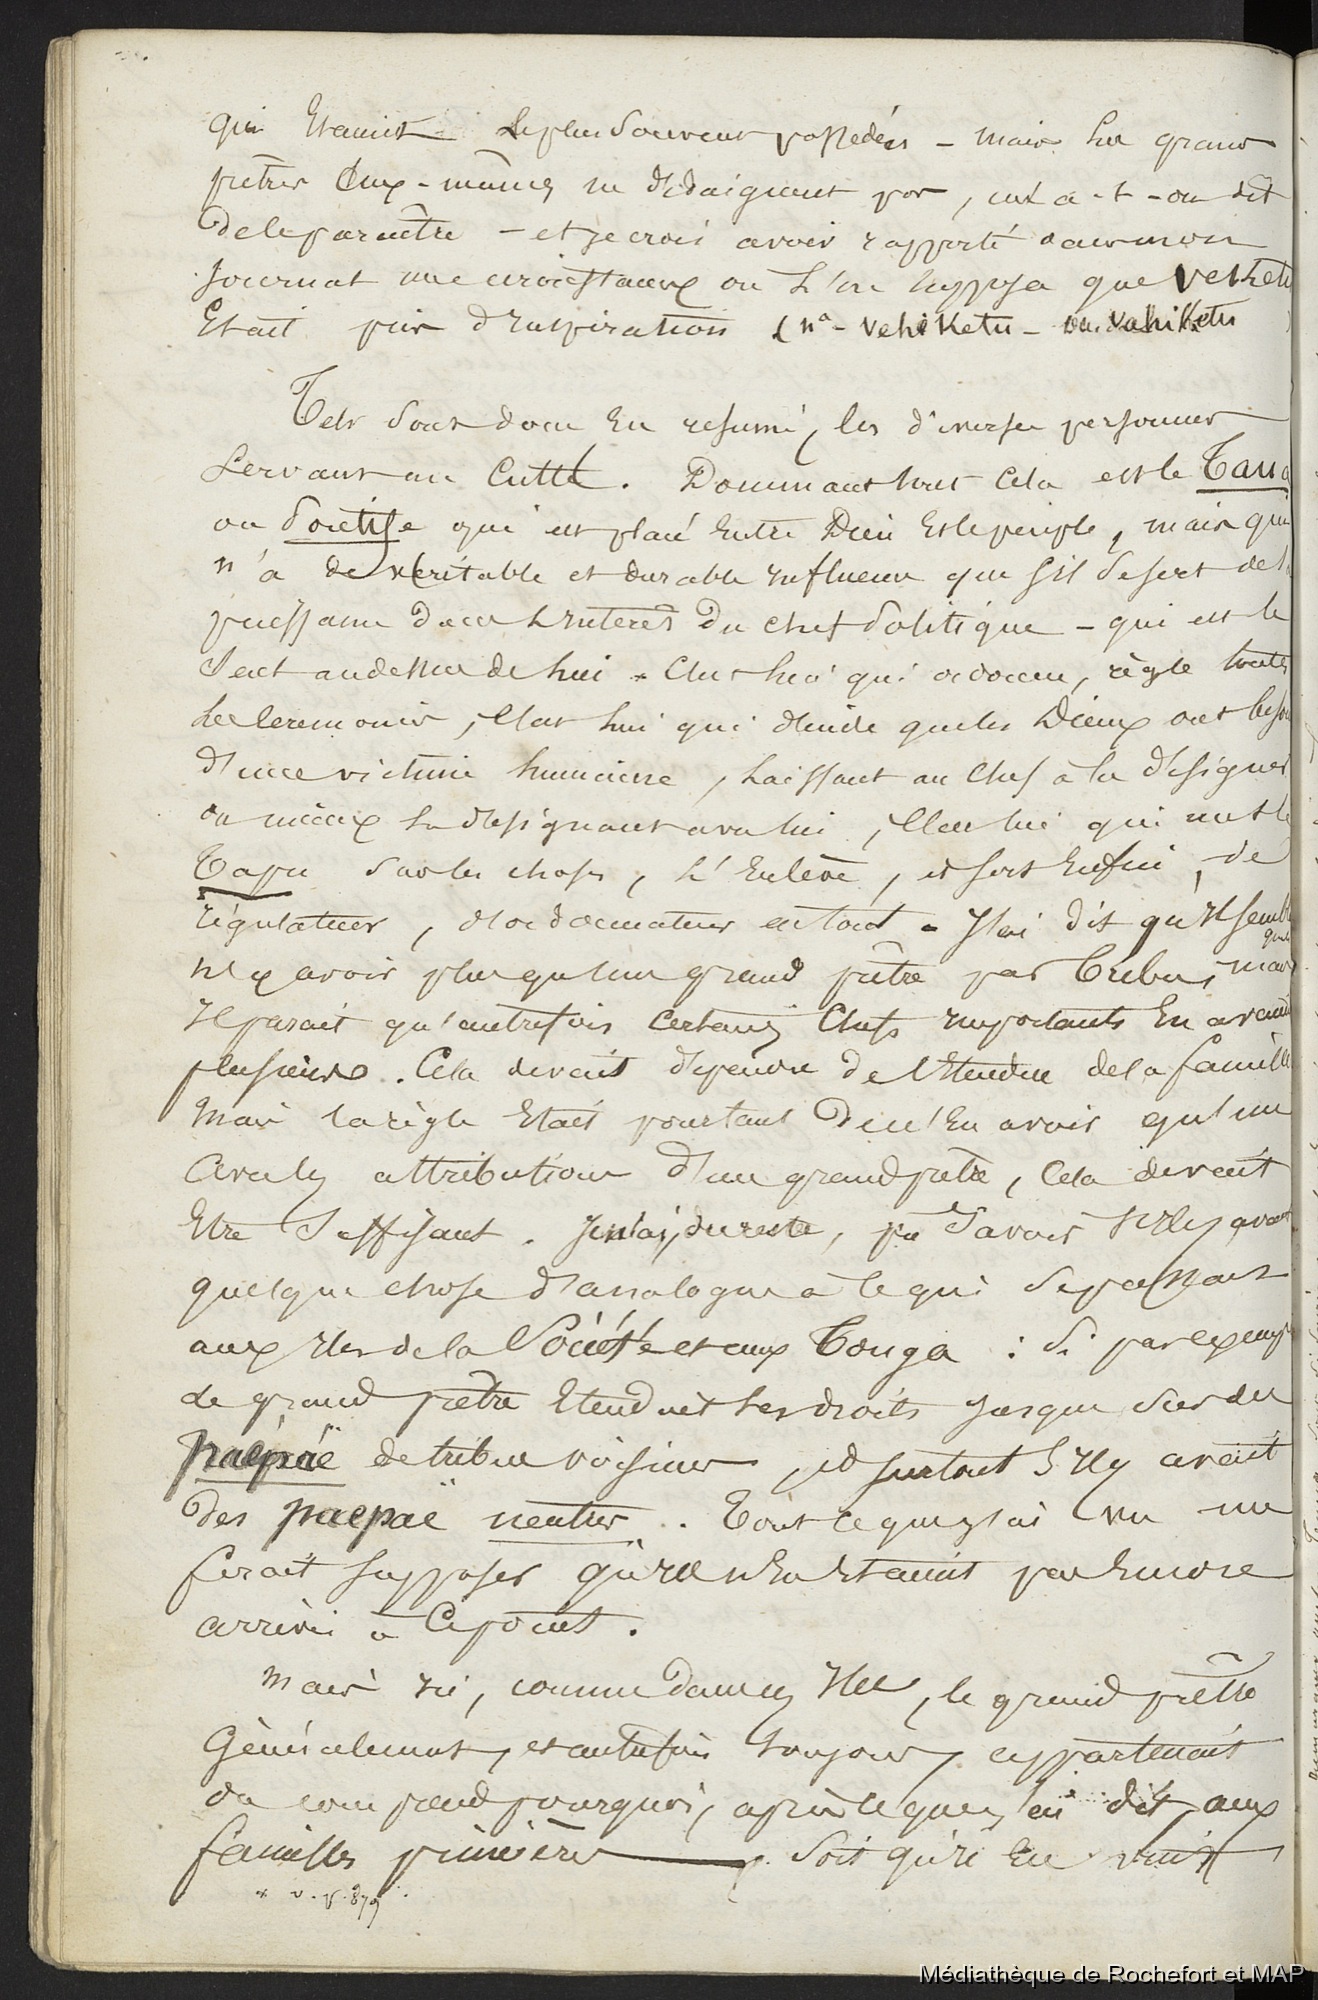 qui Etaient le plus souvent possédés - mais les grands
prêtres Eux-mêmes ne dédaignent pas, m'a-t-on dit
de le paraître - et je crois avoir rapporté dans mon
journal une circonstance où l'on supposa que Veketu
Etait pris d'Inspiration (nª - Vehiketu - ou Vahiketu
Tels sont donc En resumé, les diverses personnes
servant au Culte. Dominant tout cela est le Taua
ou Pontife qui est placé Entre Dieu Et le peuple, mais qui
n'a de véritable et durable Influence que s'il se sert de la
puissance dans l'Interêt du chef Politique - qui est le
seul au dessus de lui. C'est lui qui ordonne, règle toutes
les Ceremonies, C'est lui qui décide que les Dieux ont besoin
d'une victime humaine, laissant au Chef à la désigner
ou mieux la désignant avec lui, C'est lui qui met le
Tapu sur les choses, l'Enlève, et sert Enfin, de
régulateur, d'ordonnateur en tout. J'ai dit qu'Il semble
que
n'y avoir plus qu'un grand prêtre par tribu, mais
Il parait qu'autrefois Certains Chefs Importants En avaient
plusieurs. Cela devait dépendre de l'Etendue de la famille
Mais la règle Etait pourtant de n'En avoir qu'un
Avec les attributions d'un grand prêtre, Cela devait
Etre suffisant. Je n'ai, du reste, pu savoir s'Il y avait
quelque chose d'analogue à ce qui se passait
aux Iles de la Société et aux Tonga : si par exemple
le grand prêtre Etendait ses droits jusque sur des
paepaë de tribus voisines, et surtout s'Il y avait
des paepaë neutres. Tout ce que j'ai vu me
ferait supposer qu'Ils n'En Etaient pas Encore
arrivés à Ce point.
Mais Ici, comme dans les Iles, le grand prêtre
Généralement, et autrefois toujours, appartenait
on comprend pourquoi, après ce que j'ai dit, aux
familles premières. Soit qu'Il En vint
* v. p. 879